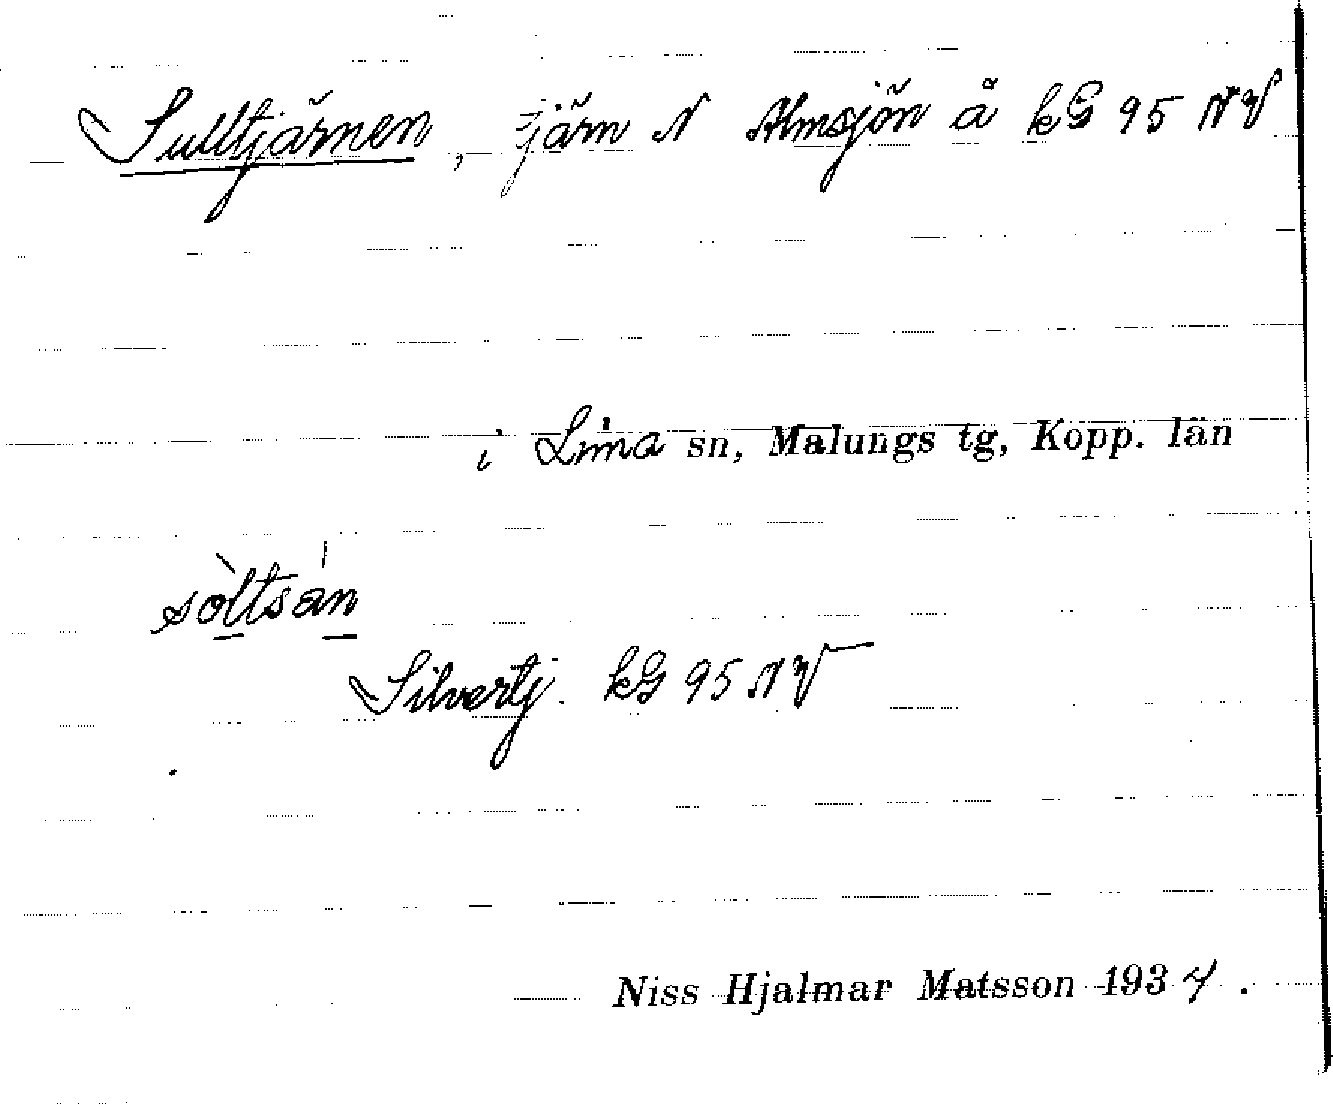 Sulltjärnen, tjärn N Almsjön å kG 95 NV
i Lima sn, Malungs tg, Kopp. län
sòltsán
Silvertj. kG 95 NV
Niss Hjalmar Matsson 1934.